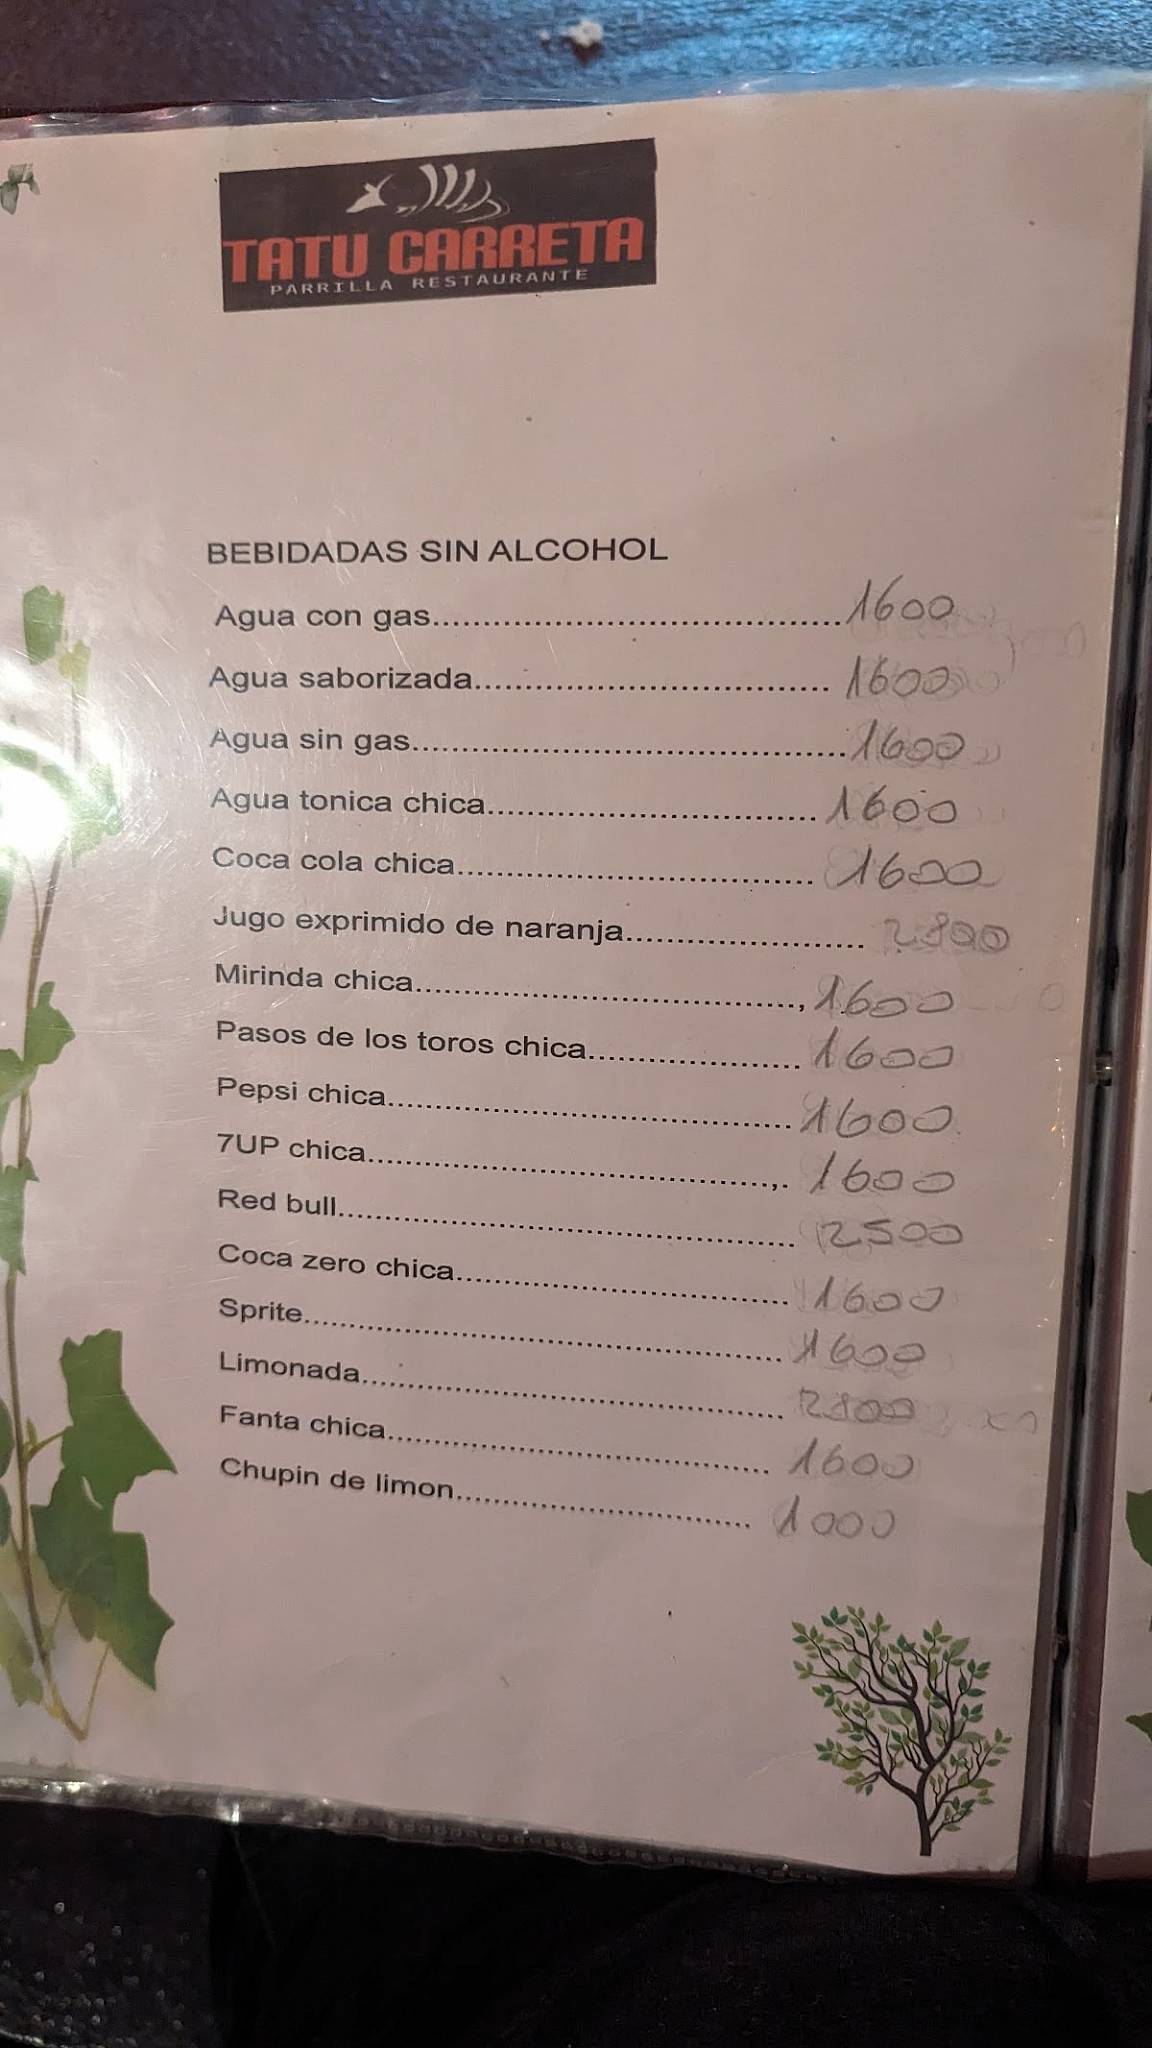 TATU CARRETA
PARRILLA RESTAURANTE
BEBIDADAS SIN ALCOHOL
Agua con gas........................................1600
Agua saborizada................................... 1600
Agua sin gas..........................................1600
Agua tonica chica.................................. 1600
Coca cola chica................................... 1600
Jugo exprimido de naranja....................... 2800
Mirinda chica......................................, 1600
Pasos de los toros chica..................... 1600
Pepsi chica......................................... 1600
7UP chica.........................................,. 1600
Red bull.............................................. 2500
Coca zero chica................................. 1600
Sprite................................................ 1600
Limonada.......................................... 2800
Fanta chica...................................... 1600
Chupin de limon............................. 1000